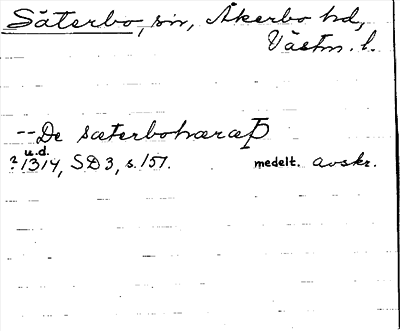 Säterbo, sn, Åkerbo hd,
Västm. l.
-- De sæterbohæræþ
u.d.
? 1314, SD 3, s. 151. medelt. avskr.